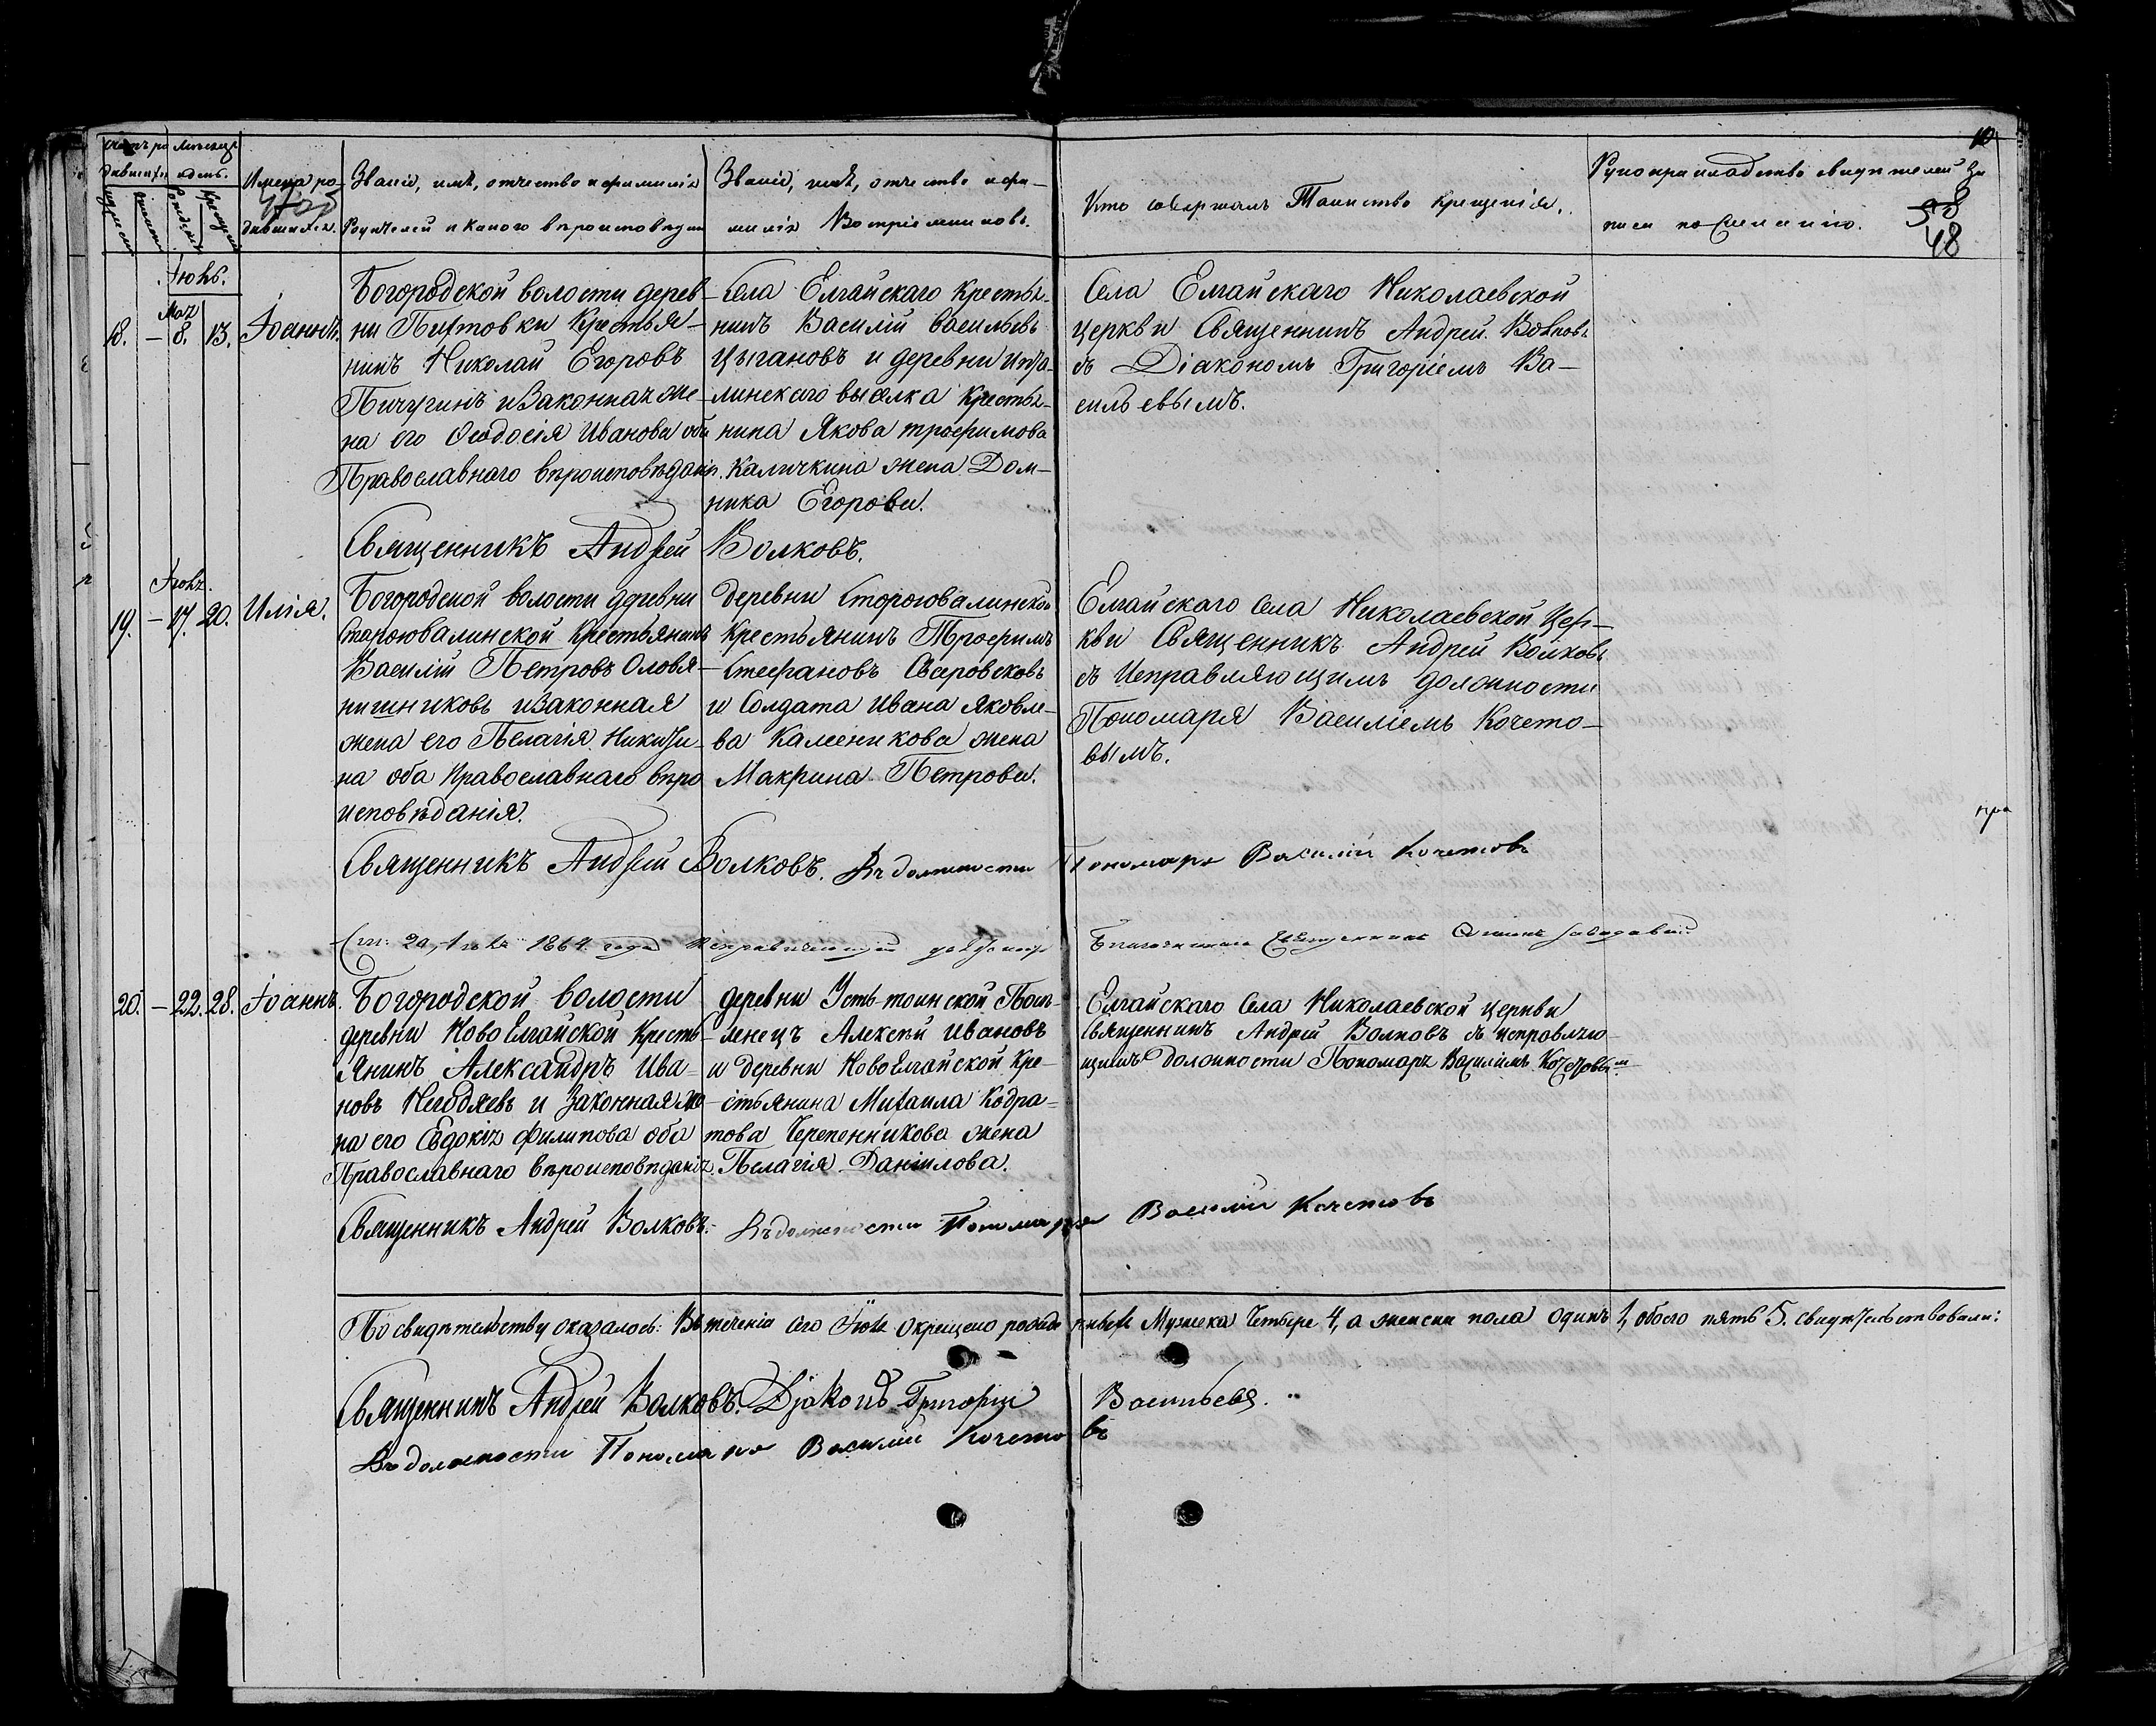 Счетъ ро Мѣсяцъ
дившихся и день.
Мужеска
Женска
Рожденія
Крещенія
Имена ро-
дившихся.
Званіе, имя, отчество и фамилія
Родителей и какого вѣроисповѣдан
Званіе, имя, отчество и фа-
милія Воспріемниковъ.
Кто совершалъ Таинство крещенія.
Рукоприкладство свидѣтелей за
писи по желанію.
10
58
48
Іюнь.
Мая
18. – 8. 13. Іоаннъ.
Богородской волости дерев-
ни Пихтовки Крестья-
нинъ Николай Егоровъ
Пичугинъ и Законная же-
на его Ѳеодосія Иванова оба
Православнаго вѣроисповѣданія.
Села Елгайскаго Крестья-
нинъ Василій Васильевъ
Цыгановъ и деревни
линскаго выселка Крестья-
нина Якова Трофимова
Каличкина жена Дом-
ника Егорова.
Села Елгайскаго Николаевской
церкви Священникъ Андрей Волковъ
съ Діакономъ Григоріемъ Ва-
сильевымъ.
Священникъ Андрей Волковъ.
Іюня.
19. – 17. 20. Илія.
Богородской волости деревни
Староювалинской Крестьянинъ
Василій Петровъ Оловя-
нишниковъ и законная
жена его Пелагія Никити-
на оба Православнаго вѣро
исповѣданія.
деревни Староювалинской
Крестьянинъ Трофимъ
Стефановъ Сваровсковъ
и Солдата Ивана Яковле-
ва Каменикова жена
Макрина Петрова.
Елгайскаго Села Николаевской Цер-
кви Священникъ Андрей Волковъ
съ Исправляющимъ должности
Пономаря Василіемъ Кочето-
вымъ.
Священникъ Андрей Волковъ. Въ должности Пономаря Василий Кочетовъ
20, Іюня 1869 года Благочинный Священникъ
20. – 22. 28. Іоаннъ.
Богородской волости
деревни Ново Елгайской Кресть-
янинъ Александръ Ива-
новъ Негодяевъ и Законная же-
на его Евдокія Филипова оба
Православнаго вѣроисповѣданія.
деревни Усть-тоинской Посе-
ленецъ Алексѣй Ивановъ
и деревни НовоЕлгайской Кре-
стьянина Михаила Кодра-
това Черепенникова жена
Пелагія Даніилова.
Елгайскаго Села Николаевской церкви
Священникъ Андрей Волковъ съ исправляю-
щимъ должности Пономаря Василіемъ Кочетовымъ
Священникъ Андрей Волковъ. Въ должности Пономаря Василий Кочетовъ
По свидѣтельству оказалось: Въ теченіи сего Іюня Окрещено Мужеска Четыре 4, а женска пола одинъ 1, обоего пять 5. Свидѣтельствовали:
Священникъ Андрей Волковъ. Дьяконъ Григорій Васильевъ.
Въ должности Пономаря Василий Кочетовъ